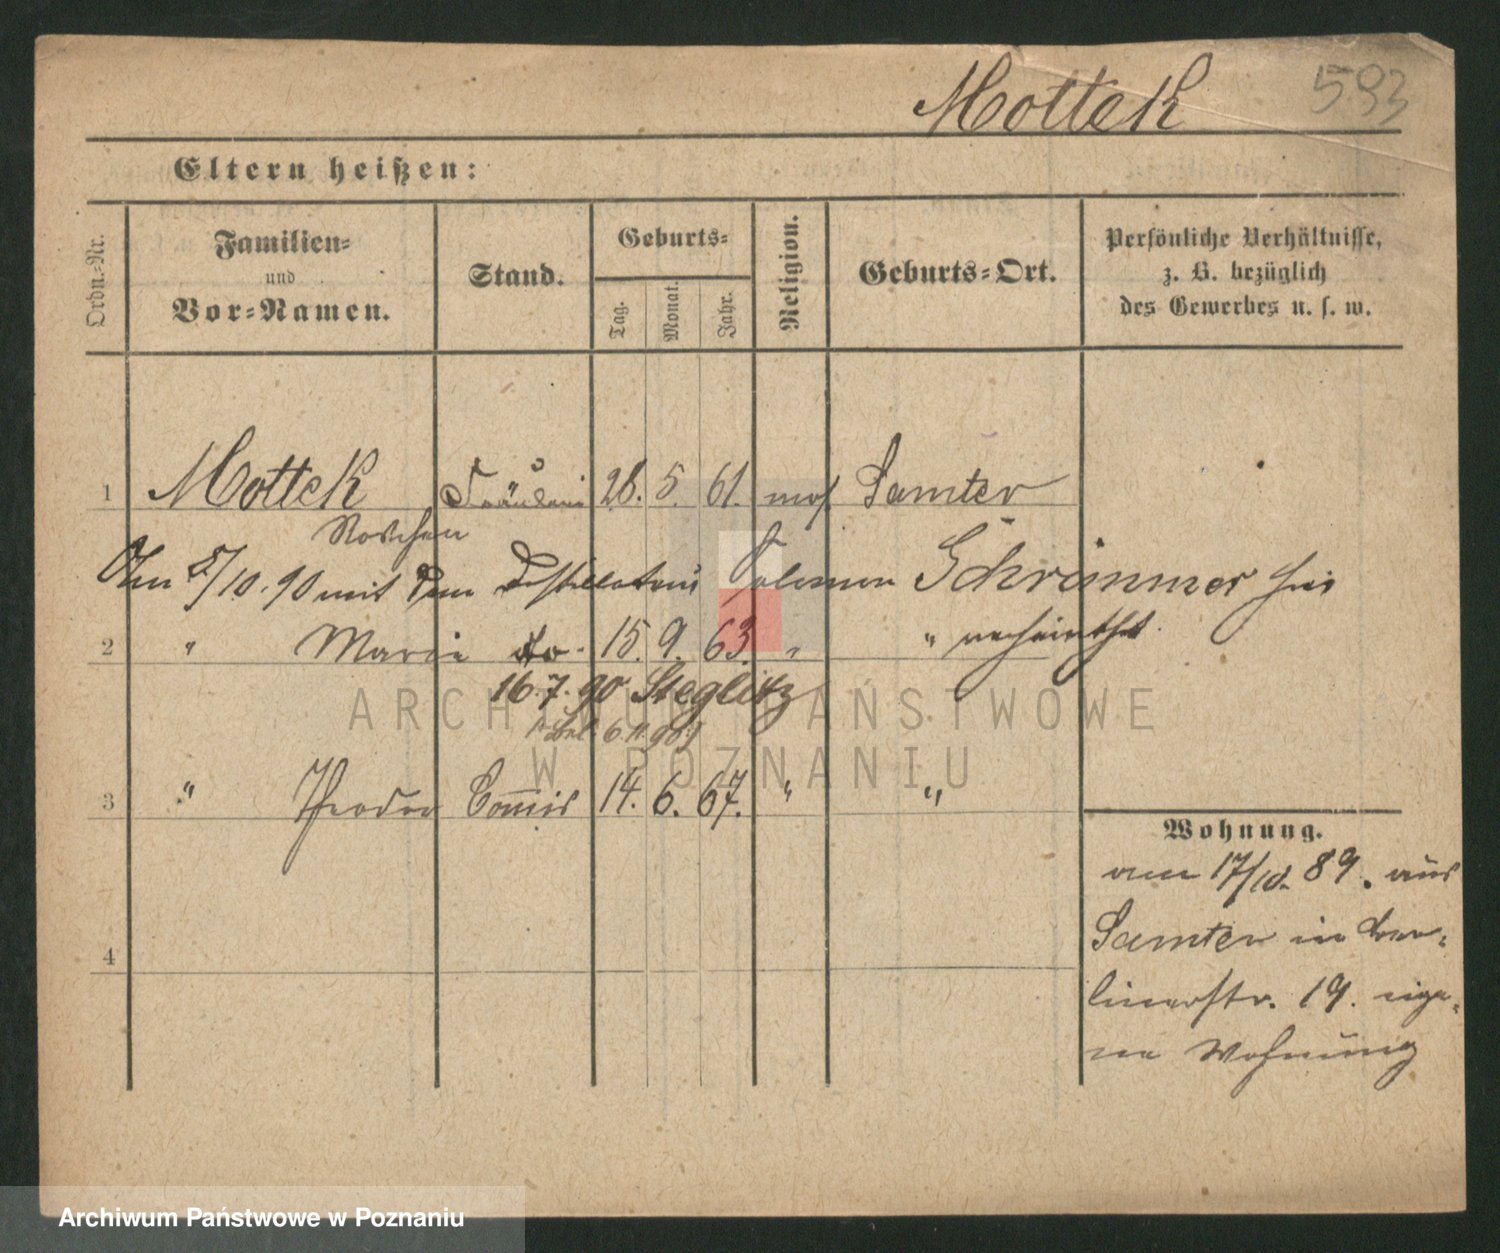 Mottek 593
Eltern heißen:
Ordn.-Nr.
Familien-
und
Vor-Namen.
Stand.
Geburts-
Tag.
Monat.
Jahr.
Religion.
Geburts-Ort.
Persönliche Verhältnisse,
z. B. bezüglich
des Gewerbes u. s. w.
1 Mottek Fräulein 28. 5. 61. mos Samter
Röschen
Am 8/10. 90 mit dem Destillateur Salomon Schrimmer hier
2 " Marie do. 15. 9. 63. " " verheirathet.
16. 7. 90 Steglitz
6 11 90
3 " Theodor Commis 14. 6. 67. " "
4
Wohnung.
am 17/10. 89. aus
Samter in Ber-
linerstr. 19. eige-
ne Wohnung
ARCHIWUM PAŃSTWOWE
W POZNANIU
Archiwum Państwowe w Poznaniu